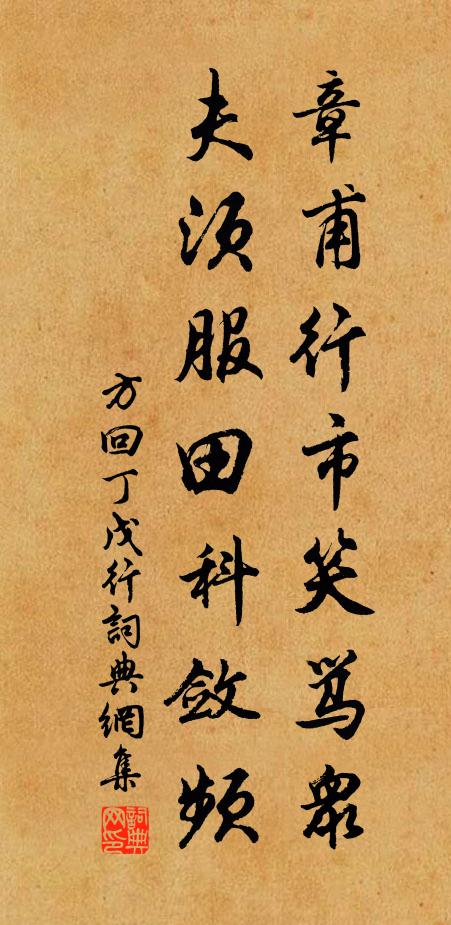 章甫行市笑骂眾
夫須服田科斂頻
方回丁戊行詞典網集
詞典网印